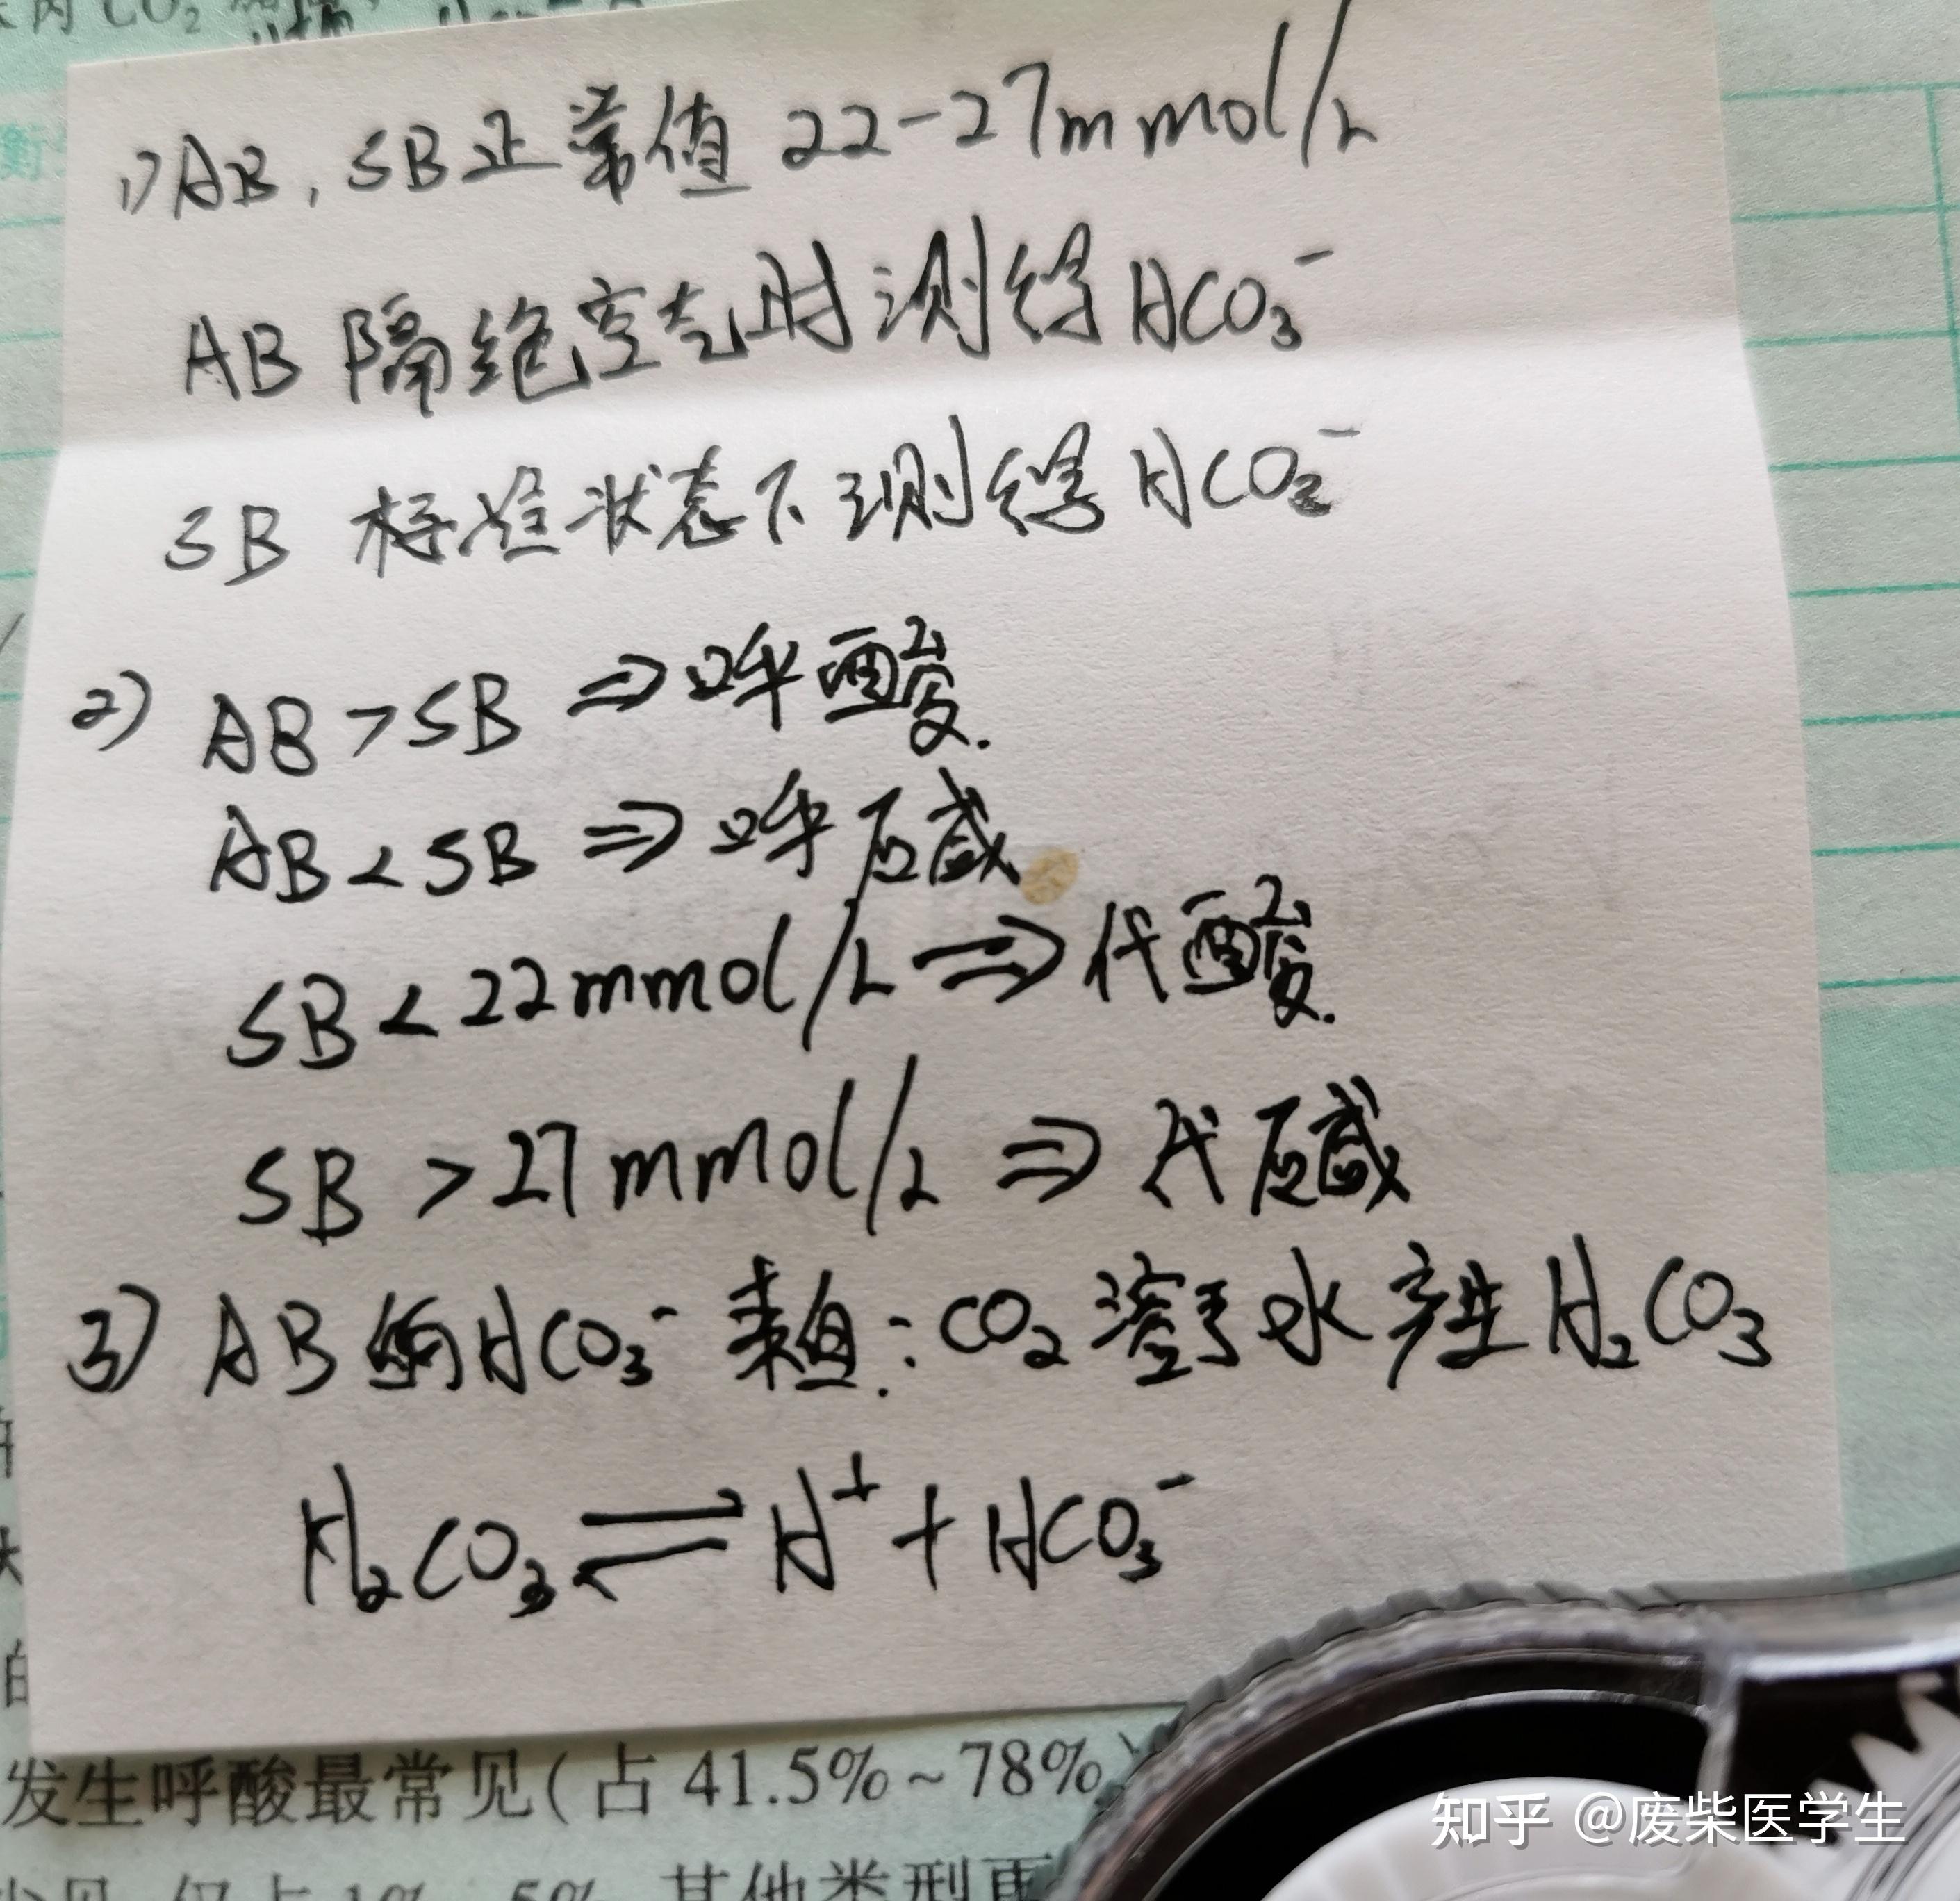 内CO₂
衡
1) AB, SB正常值 22-27mmol/L
AB 隔绝空气时测得HCO₃⁻
SB 标准状态下测得HCO₃⁻
2) AB > SB ⇒ 呼酸.
AB < SB ⇒ 呼碱
SB < 22mmol/L ⇒ 代酸.
SB > 27mmol/L ⇒ 代碱
3) AB 的HCO₃⁻ 来自: CO₂ 溶于水产生H₂CO₃
H₂CO₃ ⇌ H⁺ + HCO₃⁻
的
发生呼酸最常见(占 41.5%~78%)
其他类型更
知乎 @废柴医学生